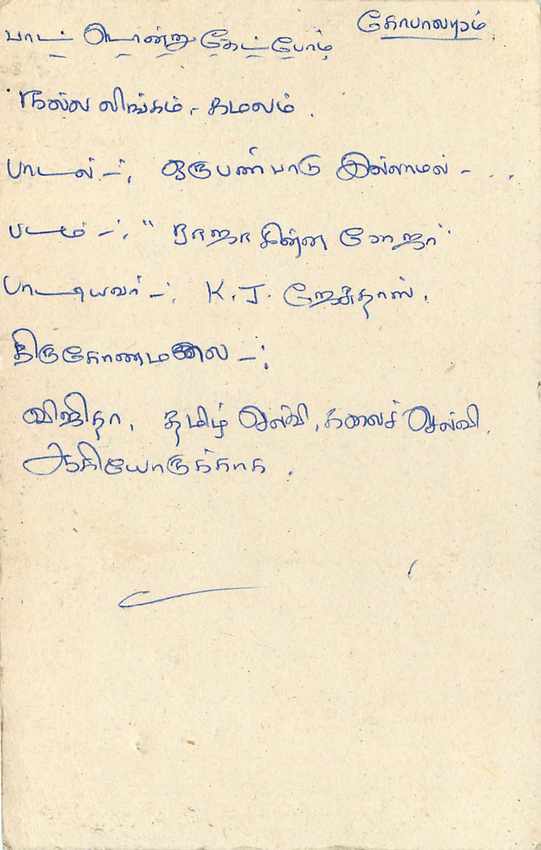 கோபாலபுரம்
பாட்டொன்று கேட்போம்
நல்லலிங்கம் - கமலம்.
பாடல் -: ஒருபண்பாடு இல்லாமல் - . . .
படம் -: " ராஜா சின்ன ரோஜா"
பாடியவர் -: K. J. ஜேசுதாஸ்.
திருகோணமலை -:
விஜிதா, தமிழ் செல்வி, கலைச் செல்வி.
ஆகியோருக்காக.